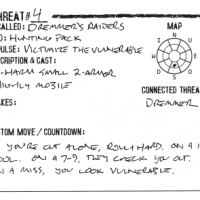 THREAT #4
MAP
CALLED: DREMMER'S RAIDERS
HUNTING PACK
IMPULSE: VICTIMIZE THE VULNERABLE
DESCRIPTION & CAST:
3-HARM SMALL 2-ARMOR
CONNECTED THREATS
MOBILE
STAKES:
DREMMER
CUSTOM MOVE / COUNTDOWN:
YOU'RE OUT ALONE, ROLL+HARD. ON A 10
COOL. ON A 7-9, THEY CHECK YOU OUT.
ON A MISS, YOU LOOK VULNERABLE.